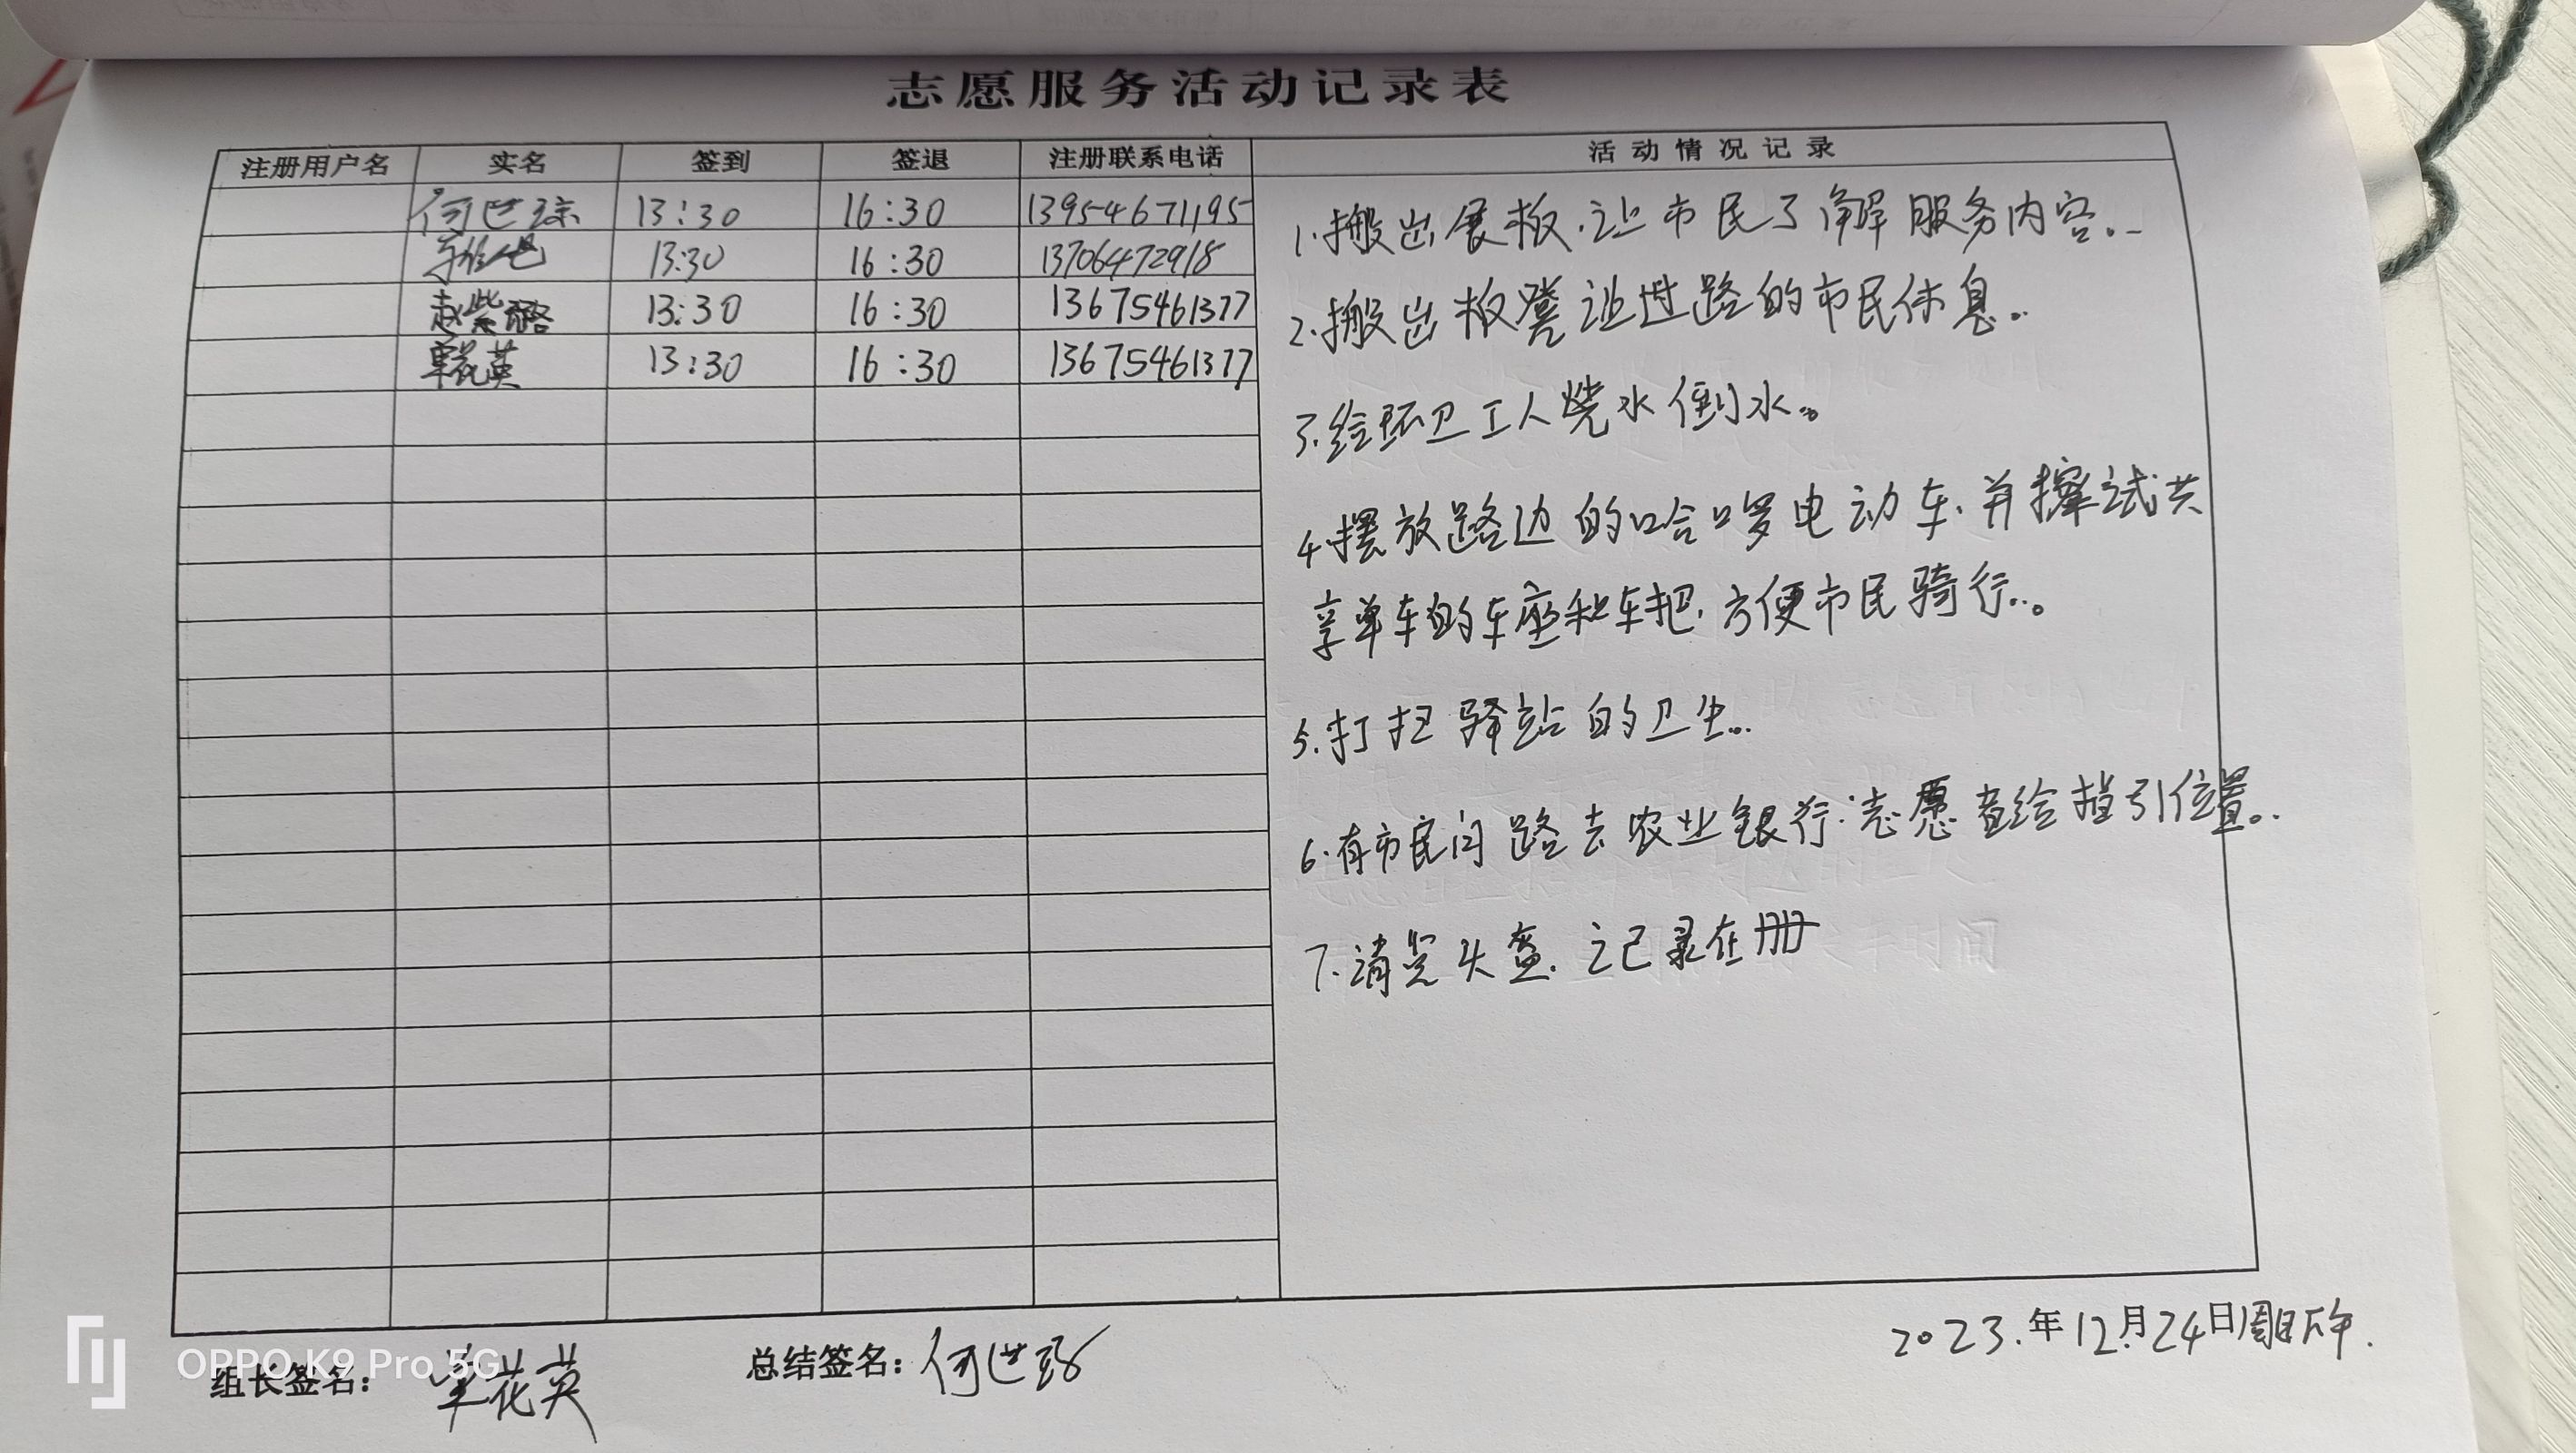 志愿服务活动记录表
注册用户名 实名 签到 签退 注册联系电话 活动情况记录
何世琼 13:30 16:30 13954671195
13:30 16:30 13706472918
赵紫璐 13:30 16:30 13675461377
单花英 13:30 16:30 13675461377
1.搬出展板.让市民了解服务内容。
2.搬出板凳让过路的市民休息。
3.给环卫工人烧水倒水。
4.摆放路边的哈啰电动车.并擦试共
享单车的车座和车把.方便市民骑行。
5.打扫驿站的卫生。
6.有市民问路去农业银行.志愿者给指引位置。
7.清点头盔.记录在册
2023.年12月24日周日下午.
组长签名: 单花英 总结签名: 何世琼
OPPO K9 Pro 5G